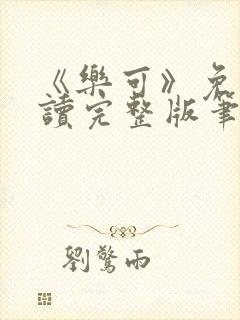 《樂可》免
讀完整版筆
劉驚雨